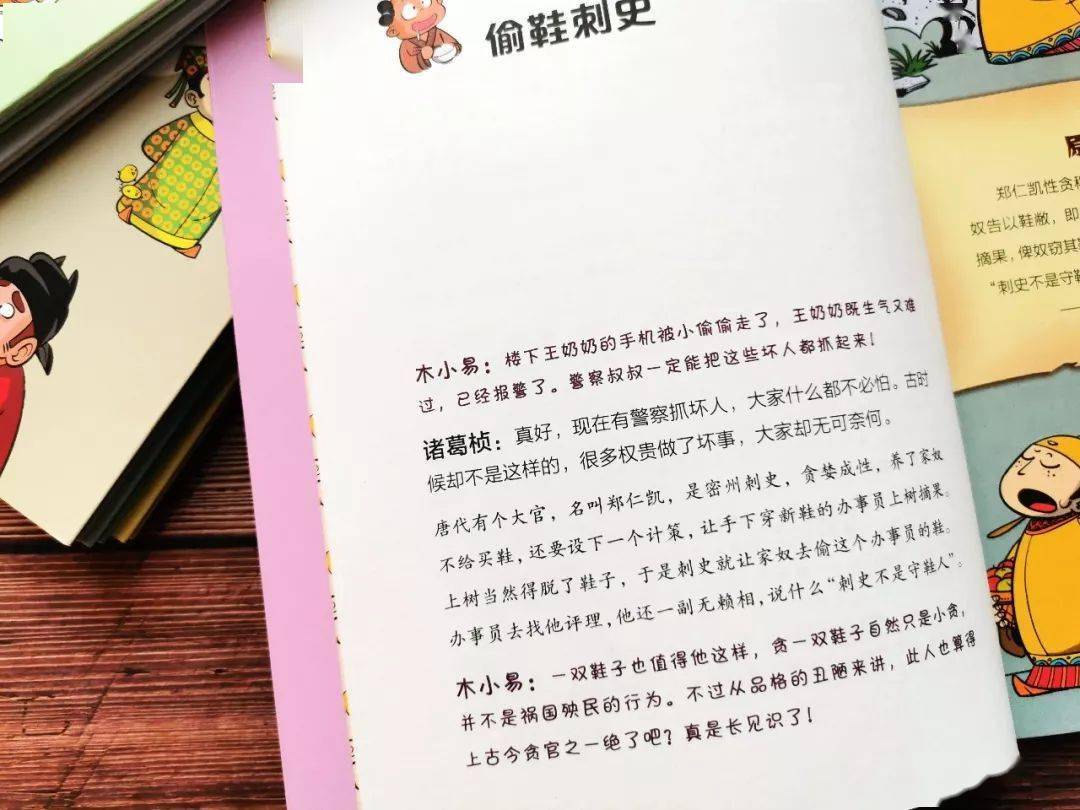 偷鞋刺史
木小易：楼下王奶奶的手机被小偷偷走了，王奶奶既生气又难
过，已经报警了。警察叔叔一定能把这些坏人都抓起来！
诸葛桢：真好，现在有警察抓坏人，大家什么都不必怕。古时
候却不是这样的，很多权贵做了坏事，大家却无可奈何。
唐代有个大官，名叫郑仁凯，是密州刺史，贪婪成性，养了家奴
不给买鞋，还要设下一个计策，让手下穿新鞋的办事员上树摘果。
上树当然得脱了鞋子，于是刺史就让家奴去偷这个办事员的鞋。
办事员去找他评理，他还一副无赖相，说什么“刺史不是守鞋人”。
木小易：一双鞋子也值得他这样，贪一双鞋子自然只是小贪，
并不是祸国殃民的行为。不过从品格的丑陋来讲，此人也算得
上古今贪官之一绝了吧？真是长见识了！
郑仁凯性贪
奴告以鞋敝，即
摘果，俾奴窃其
“刺史不是守